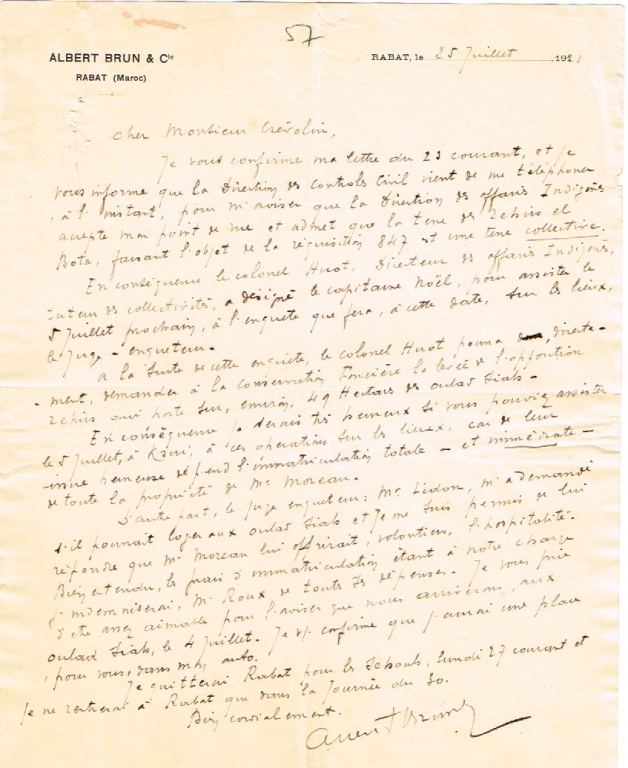 57
ALBERT BRUN & Cie
RABAT (Maroc)
RABAT, le 25 Juillet 1921
Cher Monsieur Crévolin,
Je vous confirme ma lettre du 23 courant, et je
vous informe que la Direction des Controls Civil vient de me téléphoner
à l'instant, pour m'aviser que la Direction des affaires Indigènes
accepte mon point de vue et admet que la terre des Zehirs el
Bota, faisant l'objet de la réquisition 847 est une terre collective.
En conséquence le colonel Huot, Directeur des affaires Indigènes,
tuteur des collectivités, a désigné le capitaine Noël, pour assister le
5 Juillet prochain, à l'enquete que fera, à cette date, sur les lieux,
le Juge-enqueteur.
A la suite de cette enquète, le colonel Huot pourra directe-
-ment, demander à la conservation Foncière la levée de l'opposition
Zehirs qui porte sur, environ, 49 Hectares des oulad Ziab-
En conséquence je serais très heureux si vous pouviez assister
le 5 Juillet, à ces opérations sur les lieux, car de leur
issue heureuse dépend l'immatriculation totale - et immédiate -
de toute la propriété de Mr Moreau.
D'autre part, le juge enqueteur: Mr Lidon, m'a demandé
s'il pourrait loger aux oulad Ziab et je me suis permis de lui
répondre que Mr Moreau lui offrirait, volontiers, l'hospitalité.
Bien entendu, les frais d'immatriculation étant à notre charge
j'indemniserai, Mr Roux de toutes ses dépenses. Je vous prie
d'être assez aimable pour l'aviser que nous arriverons, aux
oulad Ziab, le 4 Juillet. Je vs confirme que j'aurai une place
, pour vous, dans mon auto.
Je quitterai Rabat pour les Sehouls, lundi 27 courant et
Je ne rentrerai à Rabat que dans la journée du 30.
Bien cordialement.
Albert Brun